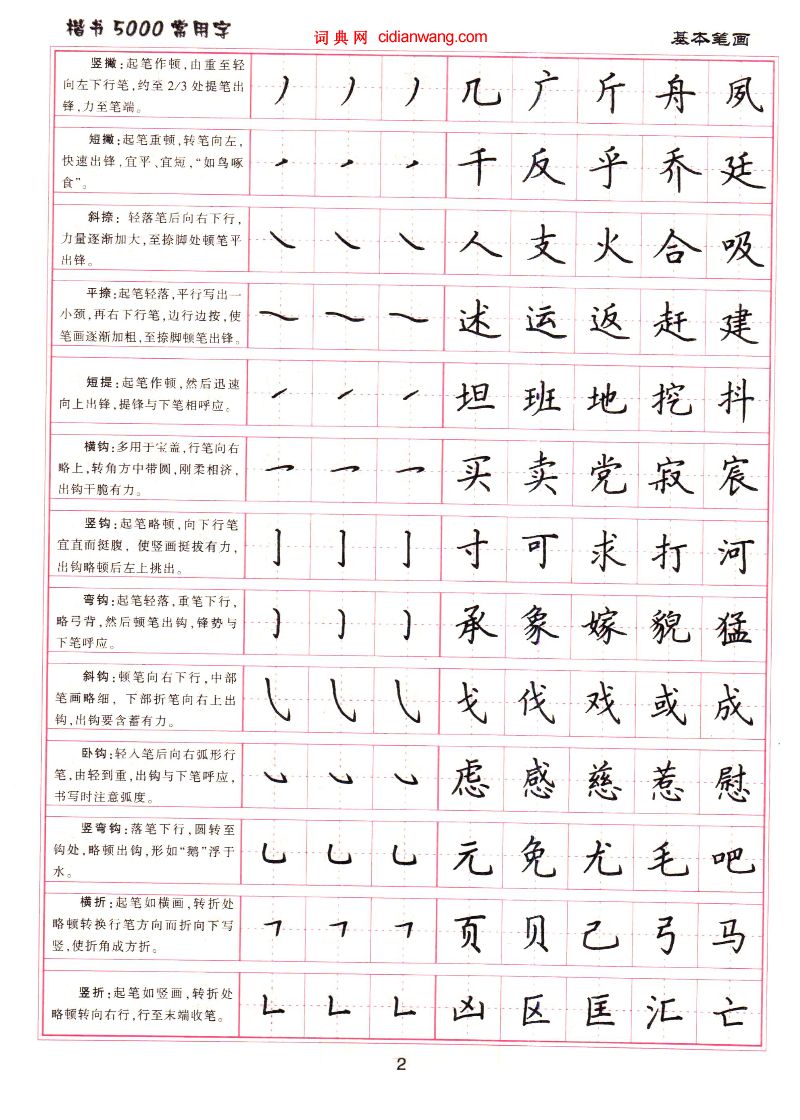 楷书5000常用字
词典网 cidianwang.com
基本笔画
竖撇:起笔作顿,由重至轻
向左下行笔,约至2/3处提笔出
锋,力至笔端。
丿 丿 丿 几 广 斤 舟 夙
短撇:起笔重顿,转笔向左,
快速出锋,宜平、宜短,“如鸟啄
食”。
千 反 乎 乔 廷
斜捺:轻落笔后向右下行,
力量逐渐加大,至捺脚处顿笔平
出锋。
人 支 火 合 吸
平捺:起笔轻落,平行写出一
小颈,再右下行笔,边行边按,使
笔画逐渐加粗,至捺脚顿笔出锋。
述 运 返 赶 建
短提:起笔作顿,然后迅速
向上出锋,提锋与下笔相呼应。
坦 班 地 挖 抖
横钩:多用于宝盖,行笔向右
略上,转角方中带圆,刚柔相济,
出钩干脆有力。
买 卖 党 寂 宸
竖钩:起笔略顿,向下行笔
宜直而挺腹,使竖画挺拔有力,
出钩略顿后左上挑出。
亅 亅 亅 寸 可 求 打 河
弯钩:起笔轻落,重笔下行,
略弓背,然后顿笔出钩,锋势与
下笔呼应。
承 象 嫁 貌 猛
斜钩:顿笔向右下行,中部
笔画略细,下部折笔向右上出
钩,出钩要含蓄有力。
戈 伐 戏 或 成
卧钩:轻入笔后向右弧形行
笔,由轻到重,出钩与下笔呼应,
书写时注意弧度。
虑 感 慈 惹 慰
竖弯钩:落笔下行,圆转至
钩处,略顿出钩,形如“鹅”浮于
水。
乚 乚 乚 元 免 尤 毛 吧
横折:起笔如横画,转折处
略顿转换行笔方向而折向下写
竖,使折角成方折。
页 贝 己 弓 马
竖折:起笔如竖画,转折处
略顿转向右行,行至末端收笔。
凶 区 匡 汇 亡
2